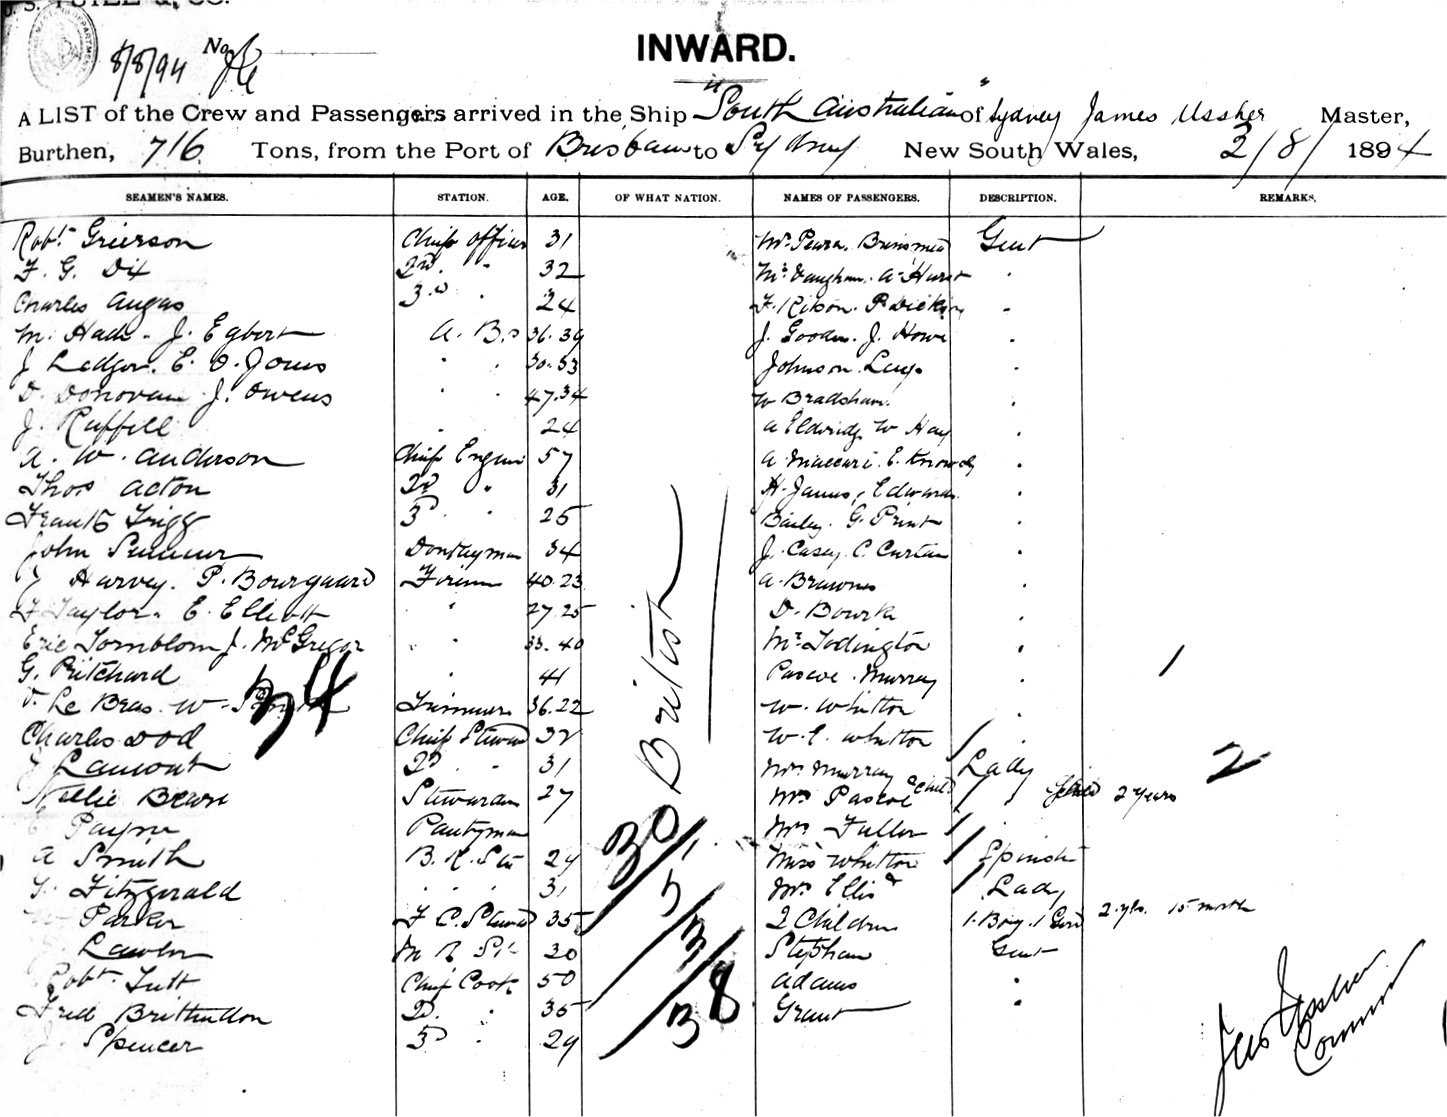 8/8/94 No
INWARD.
A LIST of the Crew and Passengers arrived in the Ship "South Australian" of Sydney James Ussher Master,
Burthen, 716 Tons, from the Port of Brisbane to Sydney New South Wales, 2/8/1894
SEAMEN'S NAMES. STATION. AGE. OF WHAT NATION. NAMES OF PASSENGERS. DESCRIPTION. REMARKS.
Robt Grierson Chief Officer 31 Mr Peara. Brinsmead Gent
F. G. Dix 2nd " 32 Mr Vaughan. A. Hurst "
Charles Angus 3rd " 24 P. Dickin "
M. Hade. J. Egbert A. B.s 36. 39 J. Gooden. J. Howe "
J Ledger. E. O. Jones " " 30. 53 Johnson. Lay "
D. Donovan J. Owens " " 47. 34 W Bradshaw "
J. Ruffell " 24 A Eldridge W Hay "
A. W. Anderson Chief Engin 57 A Maccari. E. "
Thos Acton 2d " 31 H. James, Edwards "
Frank Trigg 3d " 25 Bailey. G. Print "
John Donkeyman 34 J. Casey. C. Curtain "
J Harvey. P. Bourgaard Firemn 40. 23 A. "
F Taylor. E. Elliott " 27. 25 D. Bourke "
Eric Tornblom J. McGregor " 33. 40 Mr Todington "
G. Pritchard " 41 Pascoe. Murray 1
Le Bras. W. Trimmers 36. 22 W. Whitton "
34
British
Charles Dod Chief Steward 32 W. E. Whitton "
J Lamont 2d " 31 Mrs Murray Lady 2
Nellie Stewardess 27 Mrs Pascoe & child " 2 years
E Payne Pantryman Mrs Fuller "
A Smith B. R. Stw 29 Miss Whitton Spinster
T. Fitzgerald " " " 31 Mrs Ellis & Lady
Parker F C. Steward 35 2 Children 1. Boy. 1 Girl 2 yrs. 15 month
Lawlor M R St 20 Stephan Gent
Robt Tutt Chief Cook 50 Adams "
Fred Brittendon 2d " 35 Grant "
J. Spencer 3d " 29
30
5
3
38
Jas Ussher